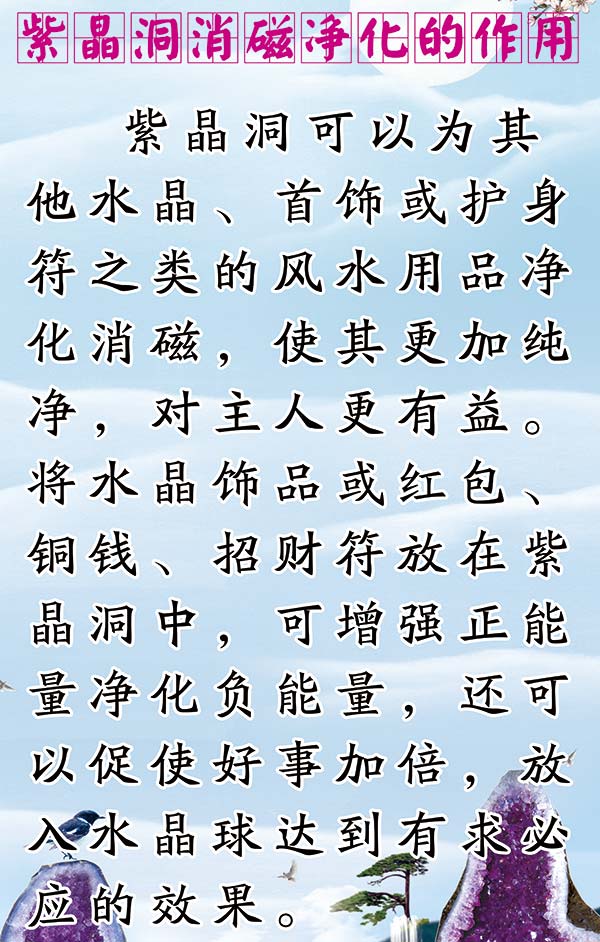 紫晶洞消磁净化的作用
紫晶洞可以为其
他水晶、首饰或护身
符之类的风水用品净
化消磁，使其更加纯
净，对主人更有益。
将水晶饰品或红包、
铜钱、招财符放在紫
晶洞中，可增强正能
量净化负能量，还可
以促使好事加倍，放
入水晶球达到有求必
应的效果。